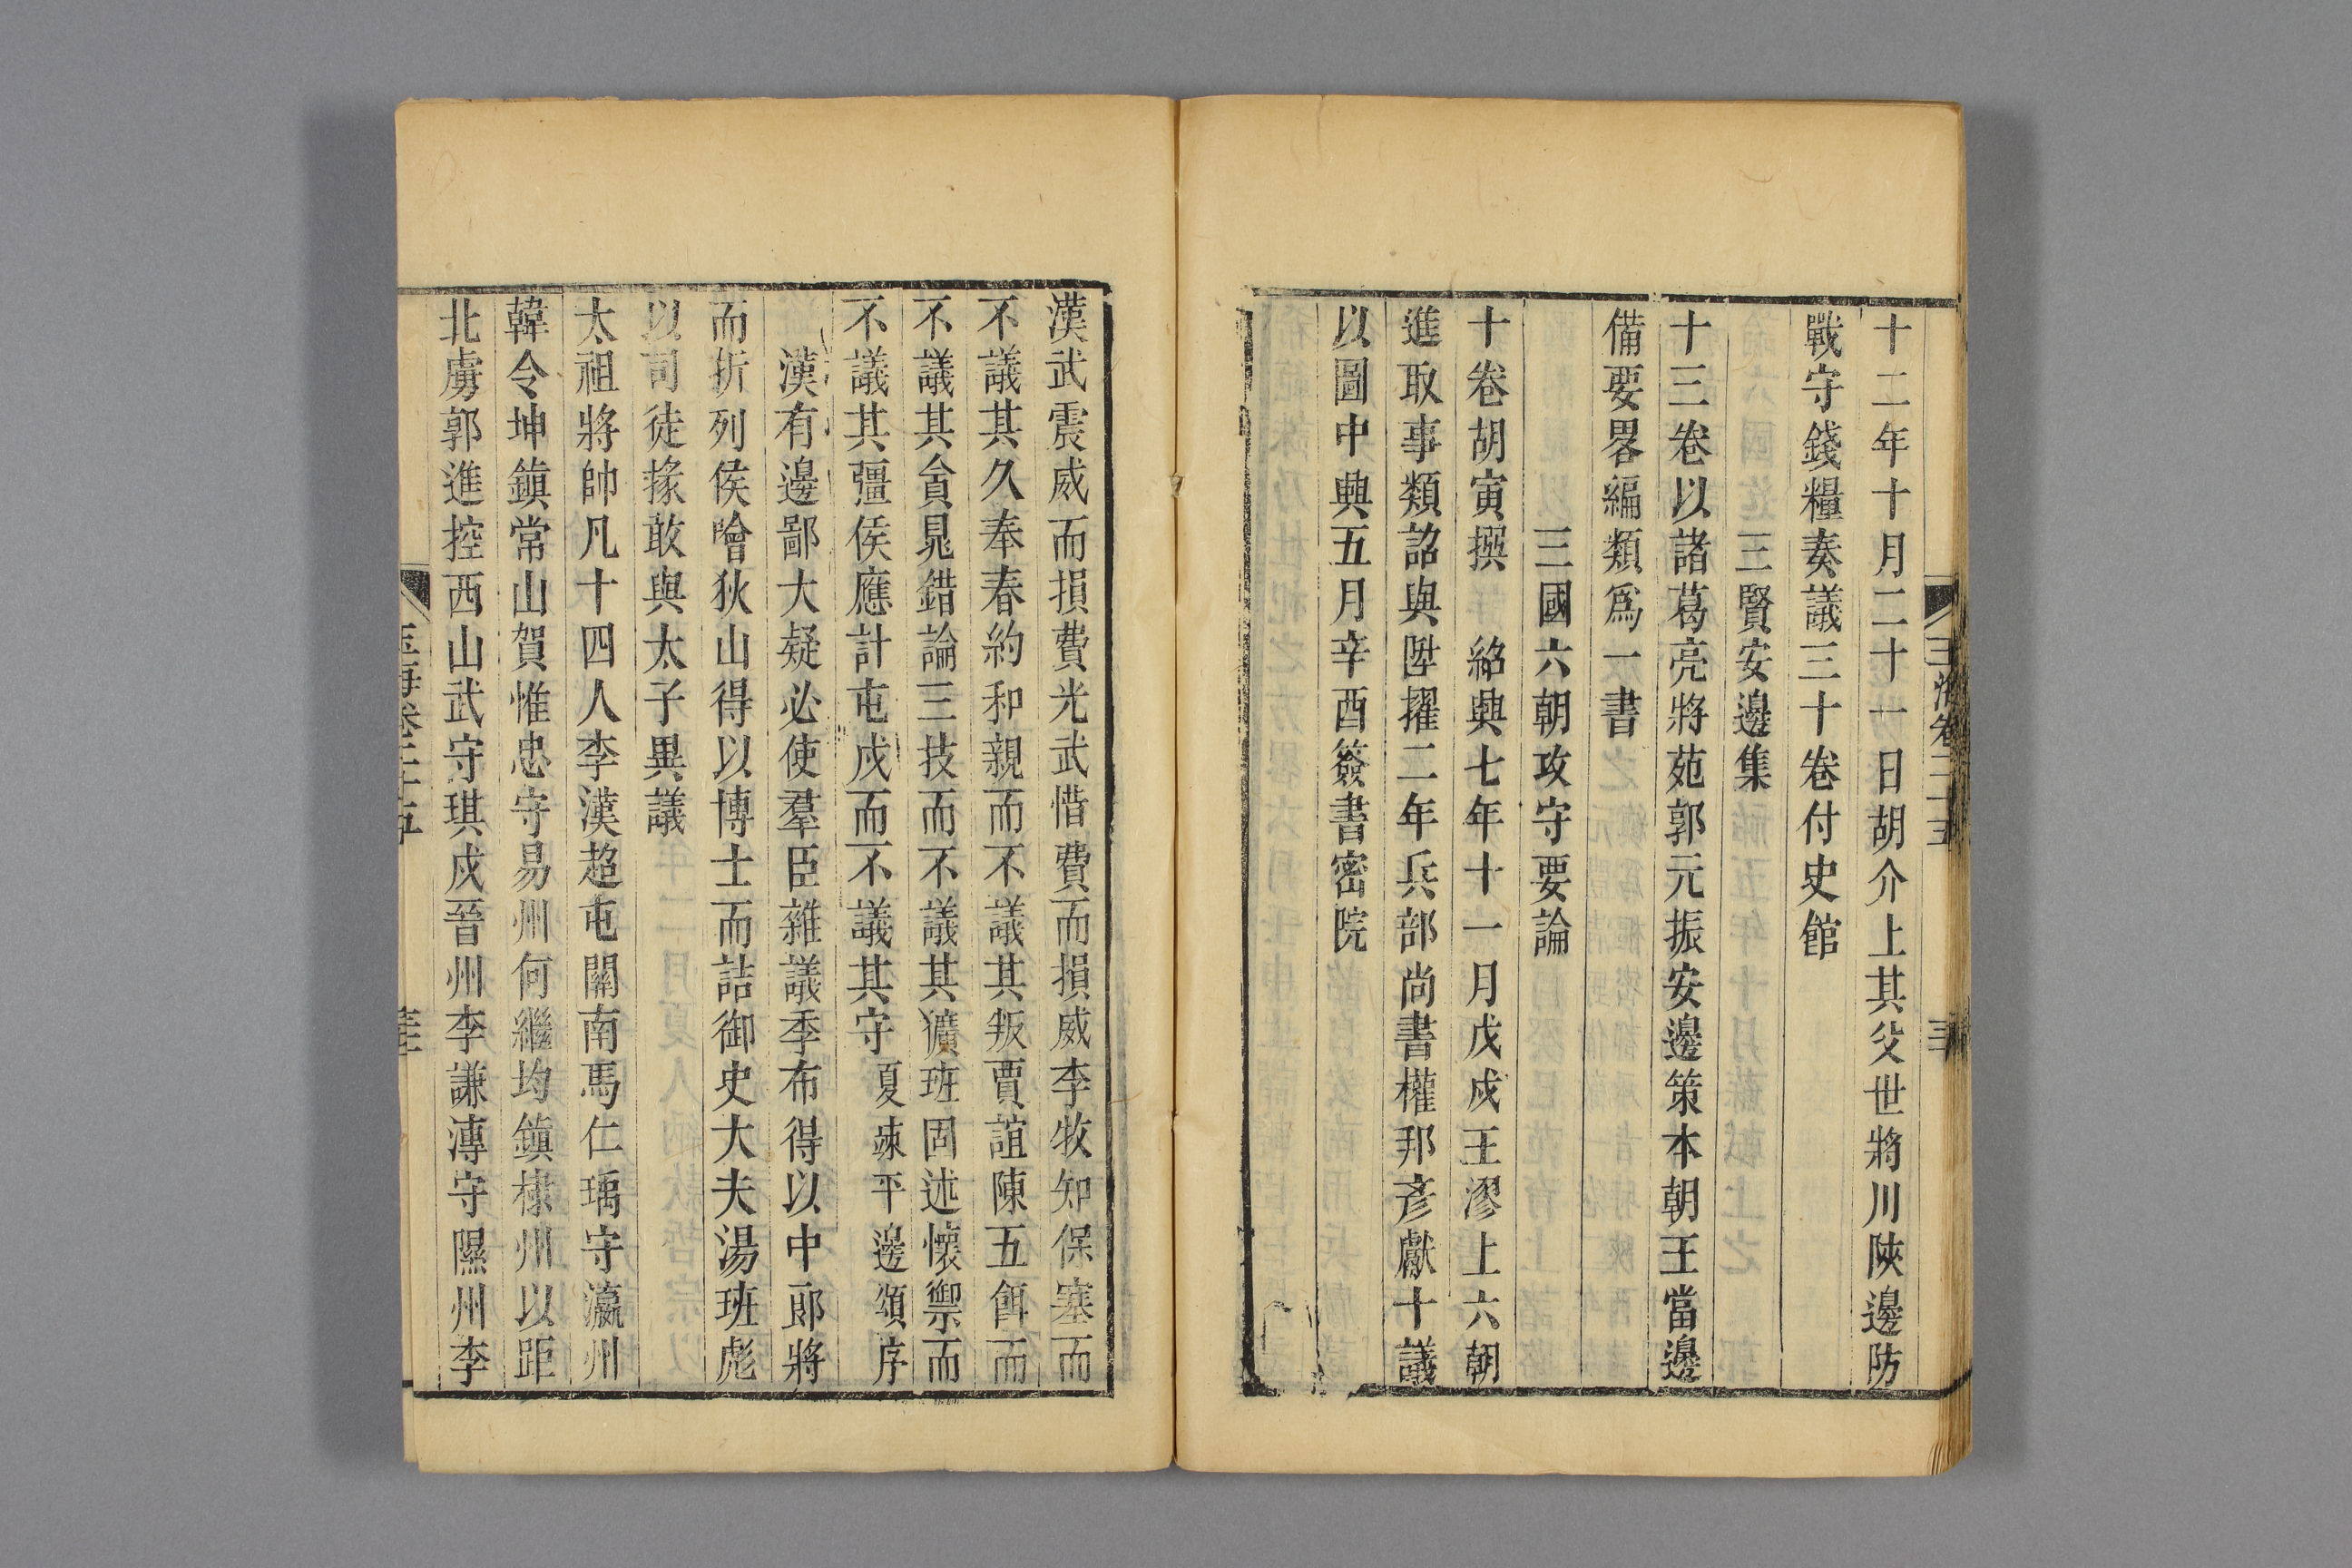 十二年十月二十一日胡介上其父世將川陝邊防
戰守錢糧奏議三十卷付史館
三賢安邊集
十三卷以諸葛亮將苑郭元振安邊策本朝王當邊
備要畧編類爲一書
三國六朝攻守要論
十卷胡寅撰 紹興七年十一月戊戌王漻上六朝
進取事類詔與陞擢二年兵部尚書權邦彥獻十議
以圖中興五月辛酉簽書密院
漢武震威而損費光武惜費而損威李牧知保塞而
不議其久奉春約和親而不議其叛賈誼陳五餌而
不議其貪晁錯論三技而不議其獷班固述懷禦而
不議其彊侯應計屯戍而不議其守 夏竦平邊頌序
漢有邊鄙大疑必使羣臣雜議季布得以中郎將
而折列侯噲狄山得以博士而詰御史大夫湯班彪
以司徒掾敢與太子異議
太祖將帥凡十四人李漢超屯關南馬仁瑀守瀛州
韓令坤鎮常山賀惟忠守易州何繼均鎮棣州以距
北虜郭進控西山武守琪戍晉州李謙溥守隰州李
玉海卷二十五